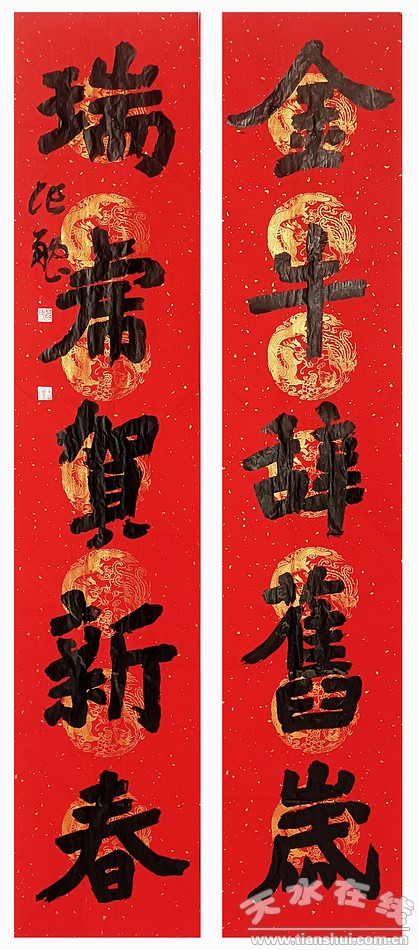 金牛辞舊歲
瑞虎賀新春
天水在线
www.tianshui.com.cn